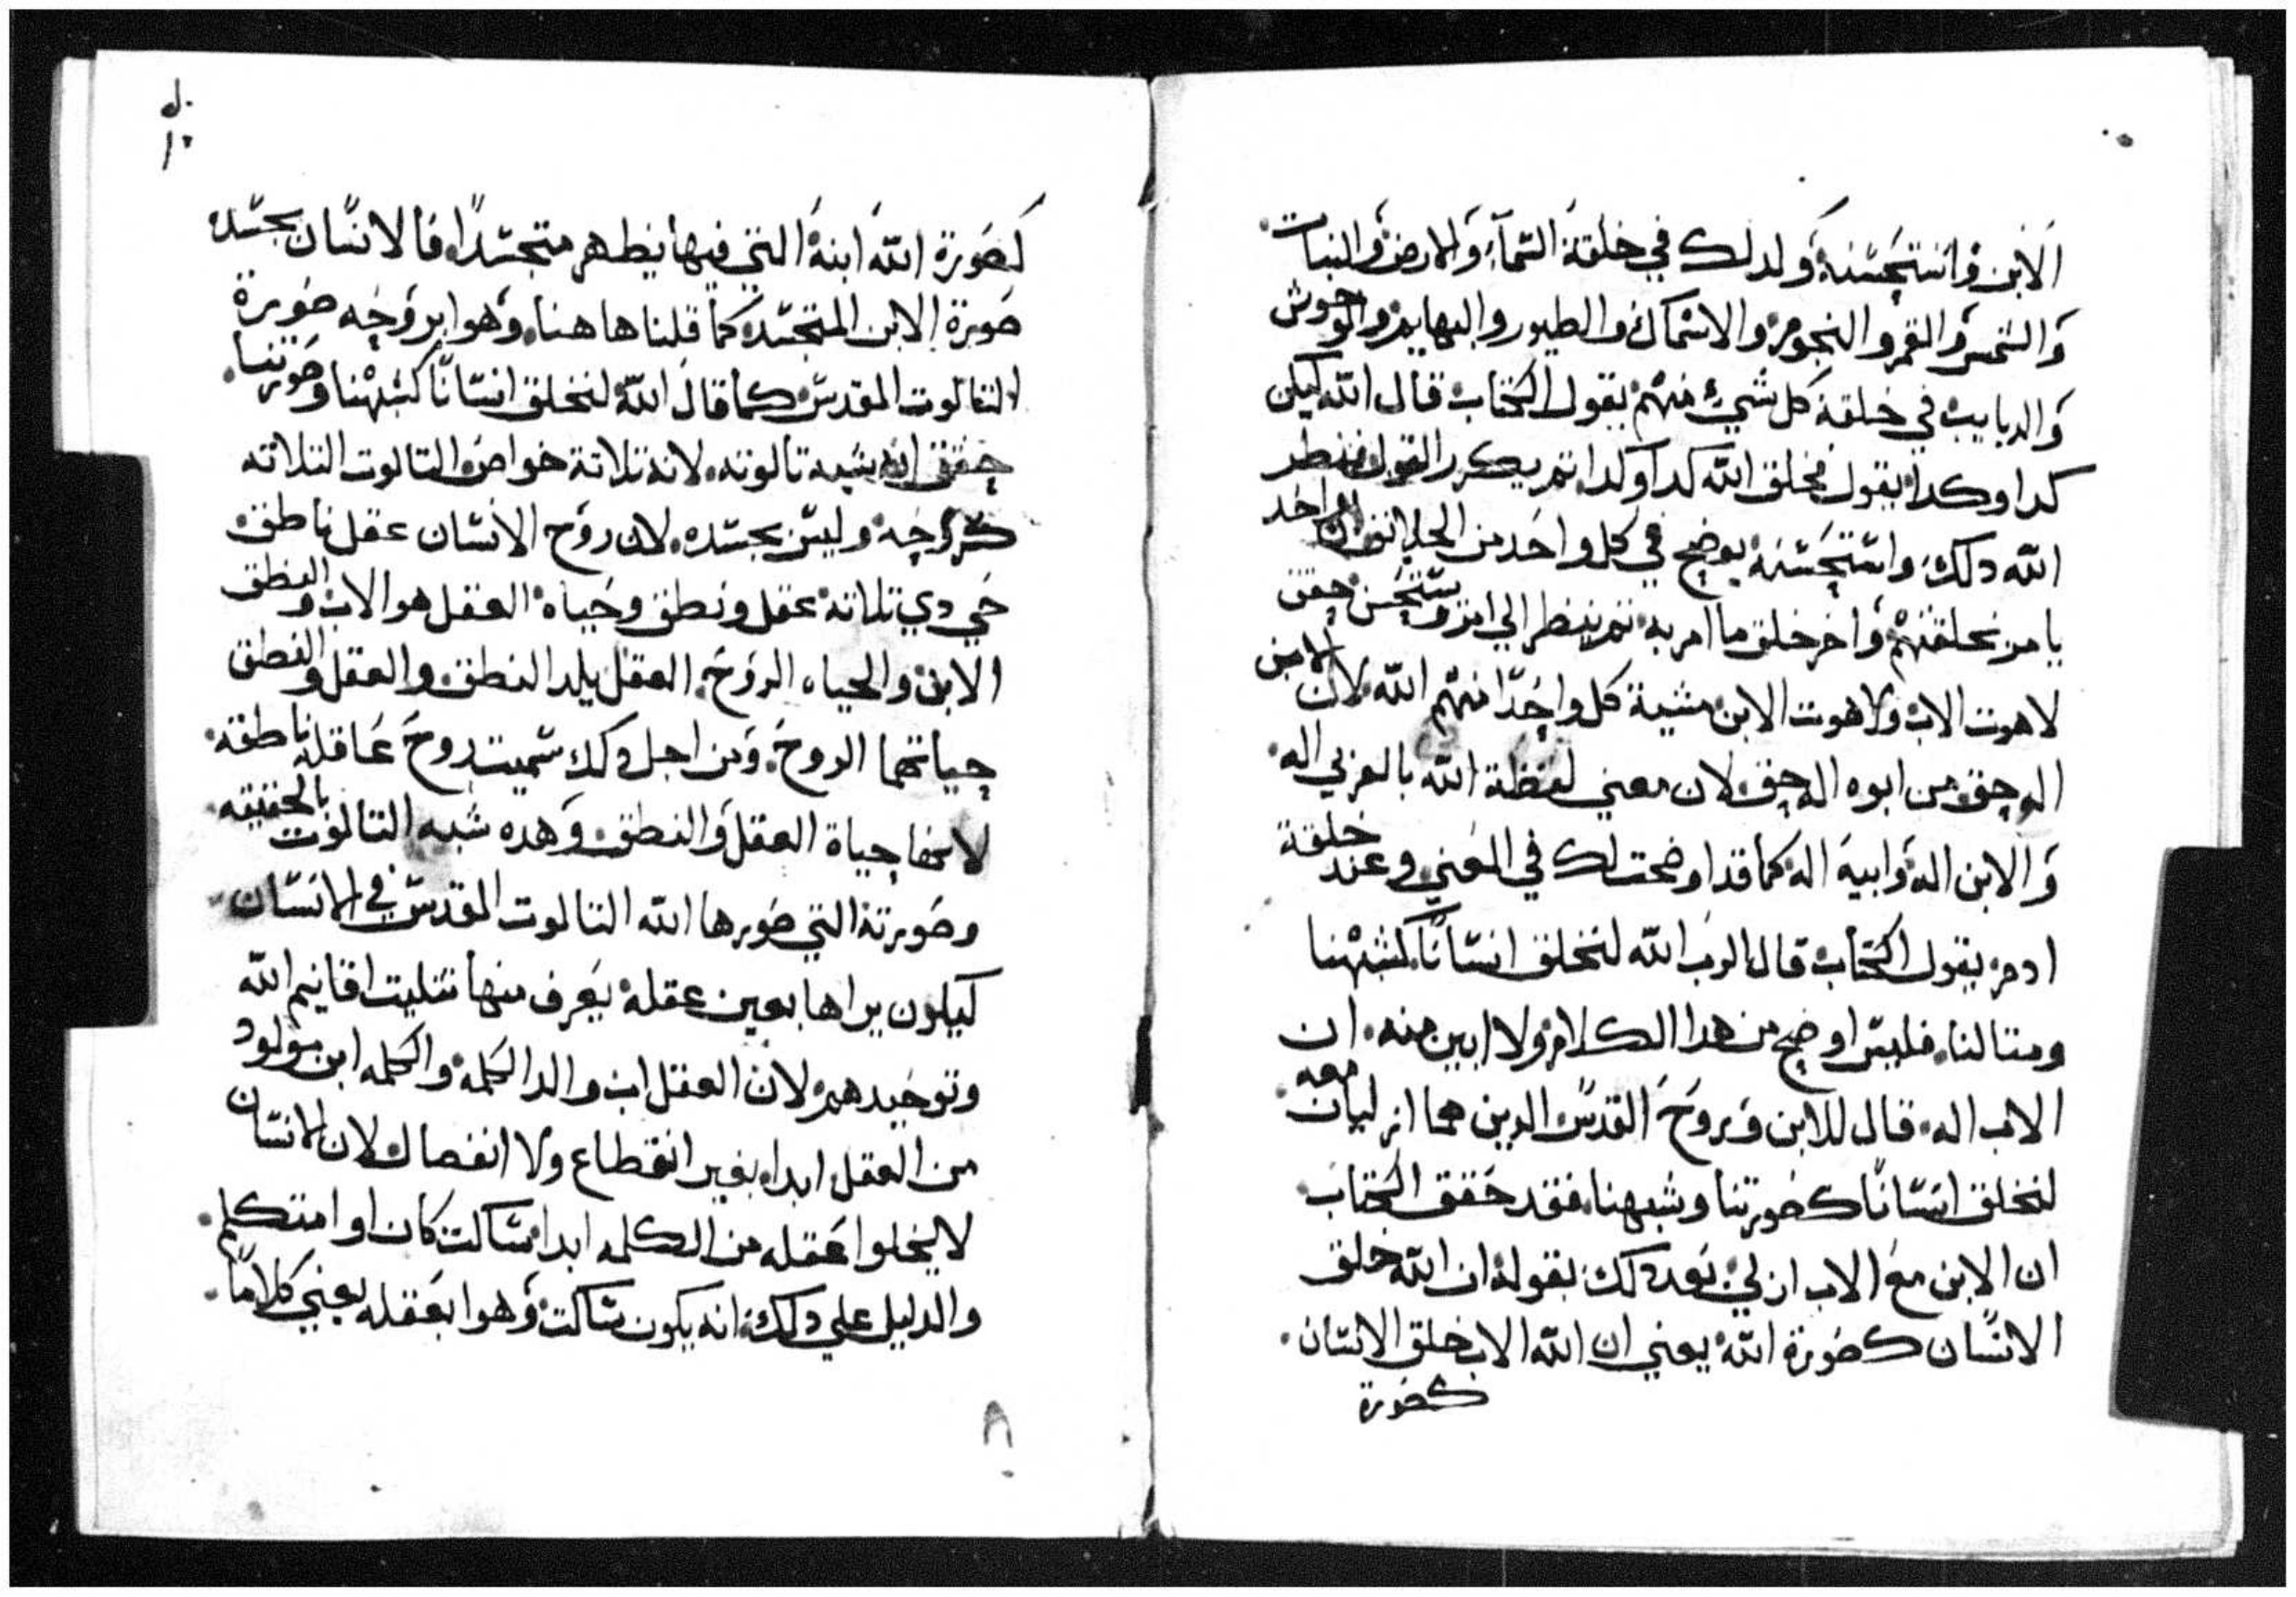 الابن واستحسنه وكدلك في خلقة السماء والارض والنبات
والشمس والقمر والنجوم والاسماك والطيور والبهايم والوحوش
والدبابيب في خلقة كل شيء منهم يقول الكتاب قال الله ليكن
كدا وكدا يقول فخلق الله كدا وكدا تم يكرر القول فنظر
الله دلك واستحسنه يوضح في كل واحد من الخلايق ان واحد
يامر بخلقتهم واخر خلق ما امر به تم ينظر الي امر ويستحسن حقق
لاهوت الاب ولاهوت الابن مشية كل واحدا منهم الله لان الابن
اله حق من ابوه اله حق لان معني لفظة الله بالعربي اله
والابن اله وابيه اله كما قد اوضحت لك في المعني وعند خلقة
ادم يقول الكتاب قال الرب الله لنخلق انسانا كشبهنا
ومتالنا فليس اوضح من هدا الكلام ولا ابين منه ان
الاب اله قال للابن وروح القدس الدين هما ازليان معه
لنخلق انسانا كصورتنا وشبهنا فقد حقق الكتاب
ان الابن مع الاب ازلي بعد دلك بقوله ان الله خلق
الانسان كصورة الله يعني ان الله الاب خلق الانسان
كصورة
١٠
كصورة الله ابنه التي فيها يظهر متجسدا فالانسان بجسده
صورة الابن المتجسد كما قلنا هاهنا وهوا بروحه صورة
التالوت المقدس كما قال الله لنخلق انسانا كشبهنا وصورتنا
حقق انه شبه تالوته لانه تلاتة خواص التالوت التلاته
كروحه وليس بجسده لان روح الانسان عقل ناطق
حي دي تلاتة عقل ونطق وحياه العقل هو الاب والنطق
الابن والحياه الروح العقل يلد النطق والعقل والنطق
حياتهما الروح ومن اجل دلك سميت روح عاقله ناطقه
لانها حياة العقل والنطق وهده شبه التالوت بالحقيقه
وصورته التي صورها الله التالوت المقدس في الانسان
ليكون يراها بعين عقله يعرف منها تتليت اقانيم الله
وتوحيدهم لان العقل اب والد الكلمه والكلمه ابن مولود
من العقل ابدا بغير انقطاع ولا انفصال لان الانسان
لا يخلوا عقله من الكلمه ابدا ساكت كان او امتكلم
والدليل علي دلك انه يكون ساكت وهوا بعقله يعني كلاما
٨